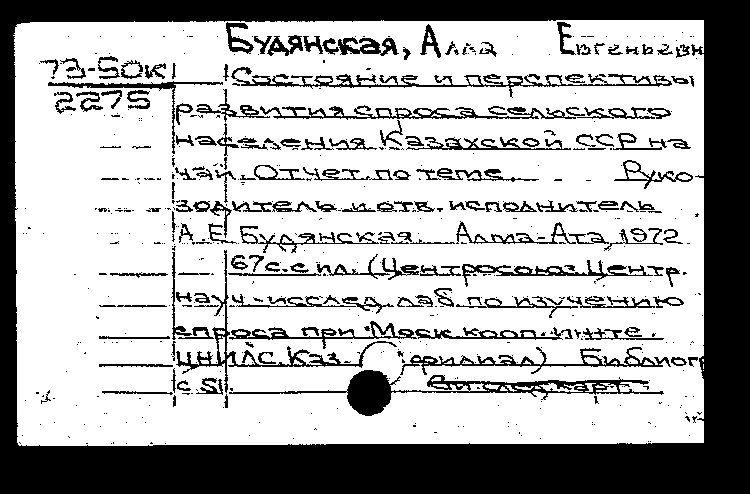 Будянская, Алла Евгеньевн
73-50К
2275
Состояние и перспективы
развития спроса сельского
населения Казахской ССР на
чай. Отчет по теме. Руко-
водитель и отв. исполнитель
А. Е. Будянская. Алма-Ата, 1972
67 с. с ил. (Центросоюз. Центр.
науч.-исслед. лаб. по изучению
спроса при Моск. кооп. ин-те.
ЦНИЛС. Каз. филиал) Библиогр
с 51.
См. след. карт.